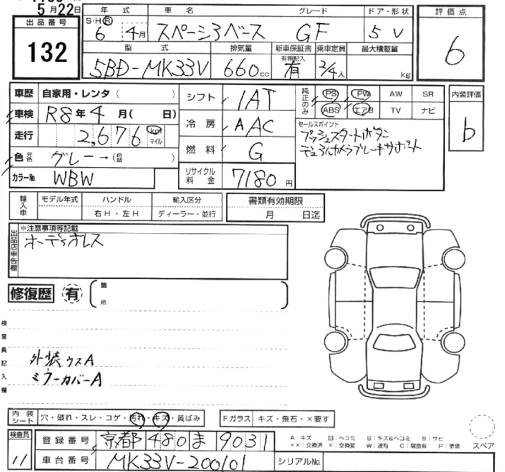 5月22日
出品番号
132
年式 車名 グレード ドア・形状 評価点
S・H・R 6年 4月 スペーシアベース GF 5V 6
型式 排気量 新車保証書 乗車定員 最大積載量
有
5BD-MK33V 660cc 有 2/4人 kg
車歴 自家用・レンタ( ) シフト IAT 純正のみ PS PW AW SR 内装評価
車検 R8年4月( 日) ABS エアB TV ナビ b
走行 2,676 km マイル 冷房 AAC セールスポイント
プッシュスタートボタン
デュアルカメラブレーキサポート
色 グレー→ 燃料 G
カラーNo WBW リサイクル料金 7180円
輸入車 モデル年式 ハンドル 輸入区分 書類有効期限
右H・左H ディーラー・並行 月 日迄
※注意事項等記載
オーディオレス
修復歴 有 箇所
検査員記入欄
外装ウスA
ミラーカバーA
内装シート 穴・破れ・スレ・コゲ・汚れ・キズ・黄ばみ Fガラス キズ・飛石・×要す
検査員 11 登録番号 京都480ま9031
A:キズ スペア
車台番号 MK33V-200101 シリアルNo